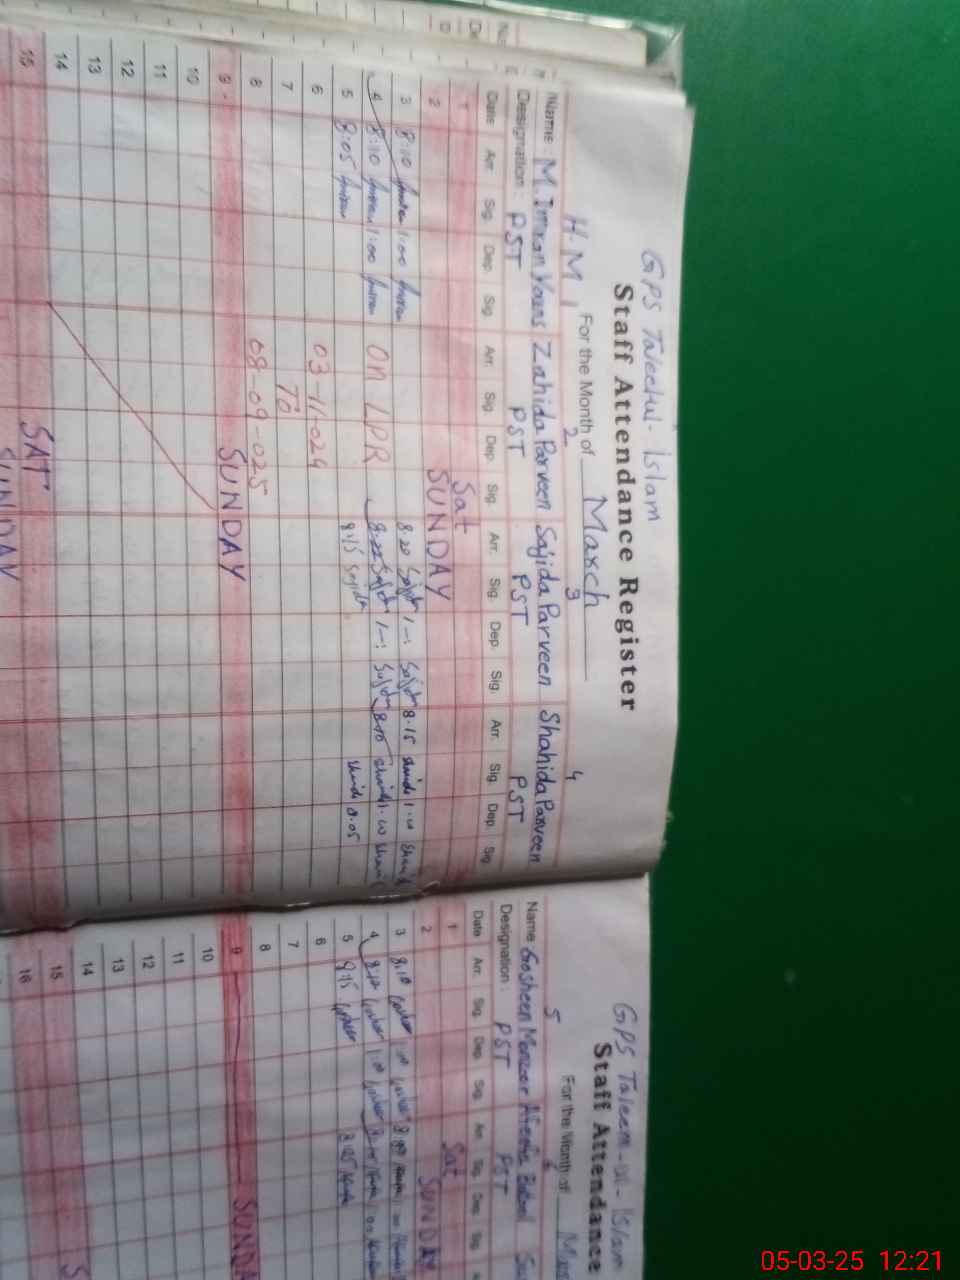 GPS Taleemul-Islam
Staff Attendance Register
For the Month of March
H.M 1 2 3 4
Name: M. Imran Younas Zahida Parveen Sajida Parveen Shahida Parveen
Designation: PST PST PST PST
Date Arr. Sig. Dep. Sig. Arr. Sig. Dep. Sig. Arr. Sig. Dep. Sig. Arr. Sig. Dep. Sig.
1 Sat
2 SUNDAY
3 8:10 1:00 8.20 Sajida 1-: Sajida 8.15
4 8:10 1:00 On LPR 8:25 Sajida 1-: Sajida
5 8:05 8:15 Sajida 8.05
6 03-11-024
7 TO
8 08-09-025
9 SUNDAY
10
11
12
13
14
15 SAT
SUNDAY
GPS Taleem-ul-Islam
Staff Attendance
For the Month of
5 6
Name Gosheen Manzoor
Designation: PST PST
Date Arr. Sig. Dep. Sig. Arr. Sig. Dep. Sig.
1 Sat
2 SUNDAY
3 8:10
4 8:10
5 8:15
6
7
8
9 SUNDA
10
11
12
13
14
15 S
16
05-03-25 12:21